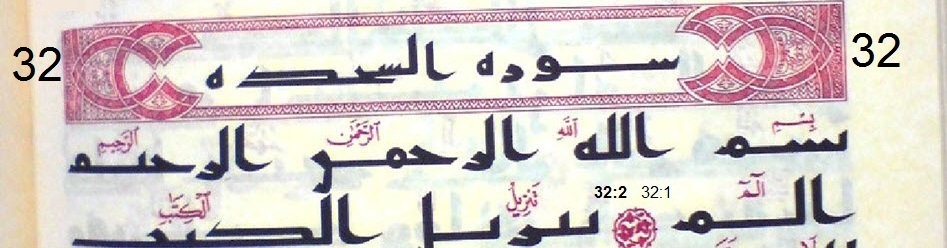 32 سوره السجده 32
بِسْمِ اللَّهِ الرَّحْمَٰنِ الرَّحِيمِ
بسم الله الرحمن الرحيم
الٓمٓ 32:1 32:2 تَنزِيلُ الْكِتَٰبِ
الم تنزيل الكتب